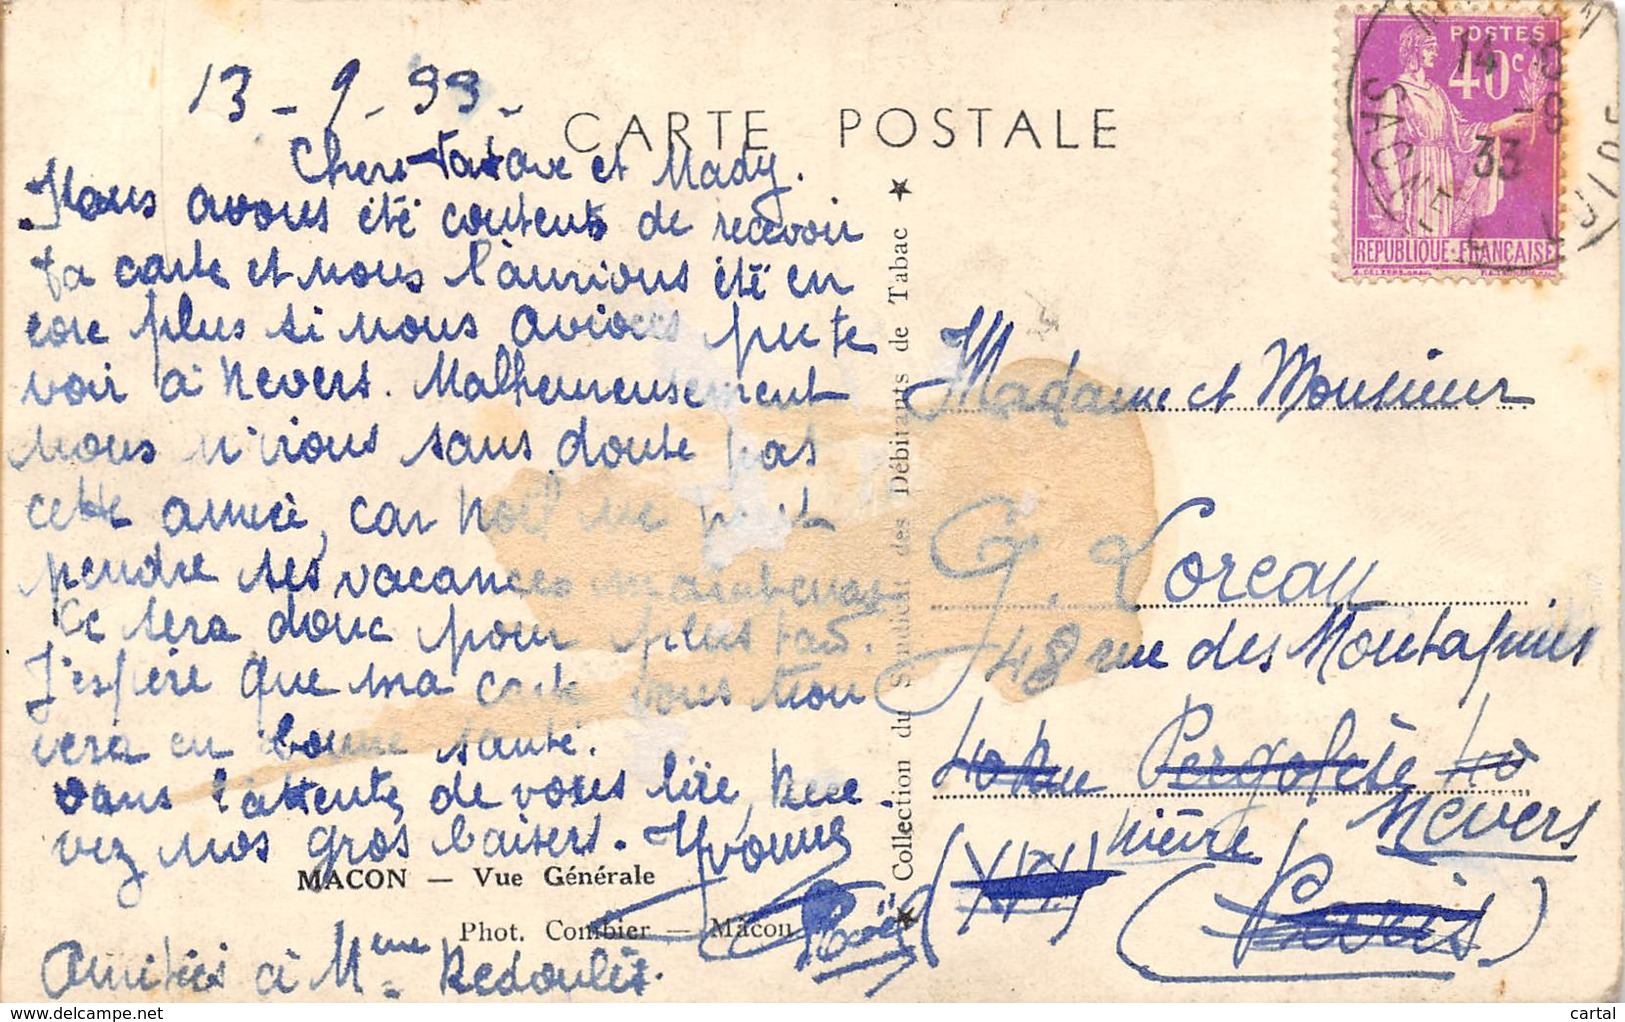 13 - 9 - 33 -
CARTE POSTALE
Chers et Mady.
Nous avons été contents de recevoir
ta carte et nous l'aurions été en
core plus si nous avions pu te
voir à Nevers. Malheureusement
nous n'irons sans doute pas
cette année, car Noël ne peut
pendre ses vacances maintenant
Ce sera donc pour plus tard.
J'espère que ma carte vous trou
vera en bonne santé.
Dans l'attente de vous lire, Rece
vez nos gros baisers. Yvonne
Noël
MACON — Vue Générale
Phot. Combier — Macon
Amitiés à Mme Redoulès.
★ Collection du Syndicat des Débitants de Tabac ★
POSTES
40c
REPUBLIQUE-FRANÇAISE
14
33
Madame et Monsieur
G. Loreau
48 rue des Montapins
40 Rue Pergolèse 40
Nevers
(XVI) Nièvre
(Paris)
cartal